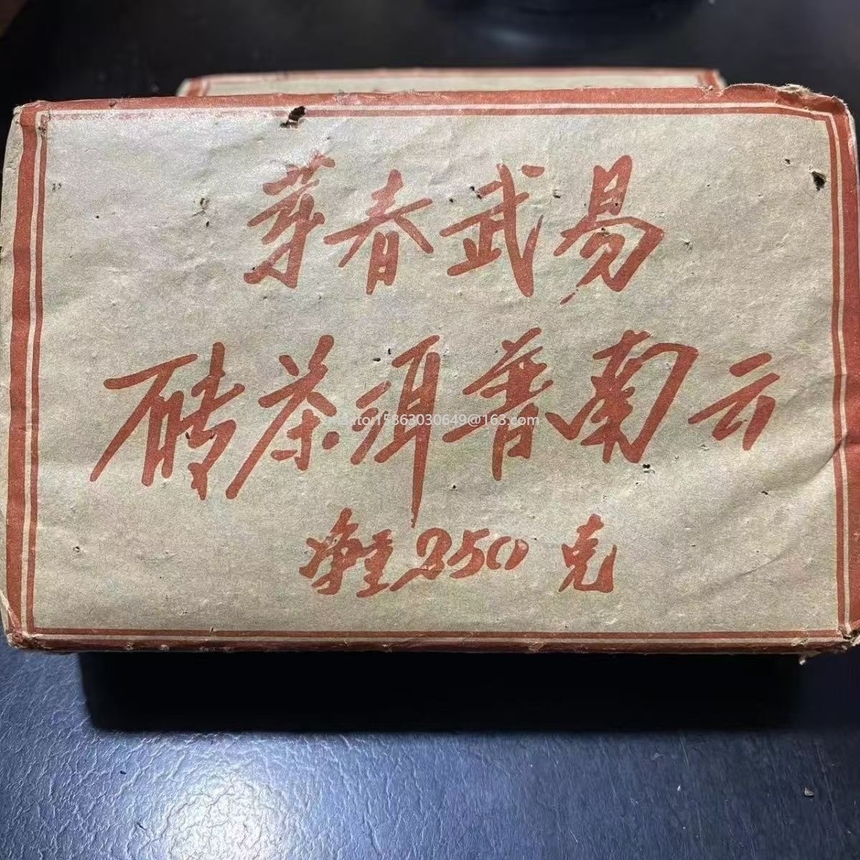 易武春芽
云南普洱茶砖
净重250克